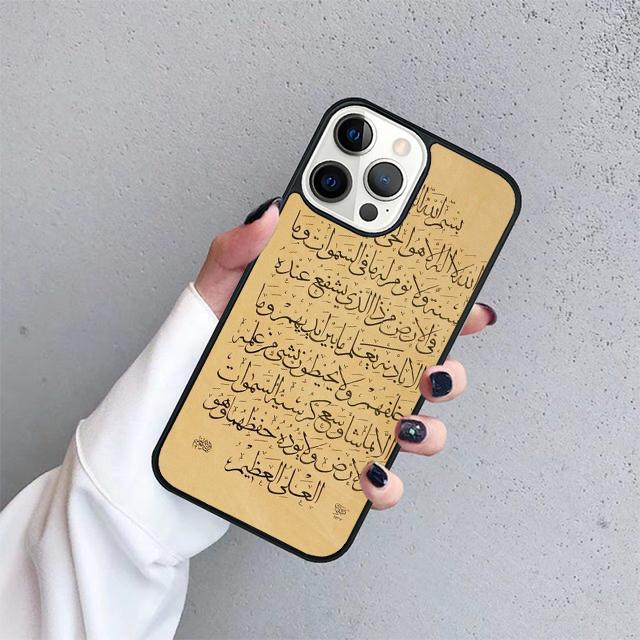 بسم الله
الله لا اله الا هو الحي
سنة ولا نوم له ما في السموات وما
في الارض من ذا الذي يشفع عنده
الا باذنه يعلم ما بين ايديهم وما
خلفهم ولا يحيطون بشئ من علمه
الا بما شاء وسع كرسيه السموات
والارض ولا يؤده حفظهما وهو
العلي العظيم